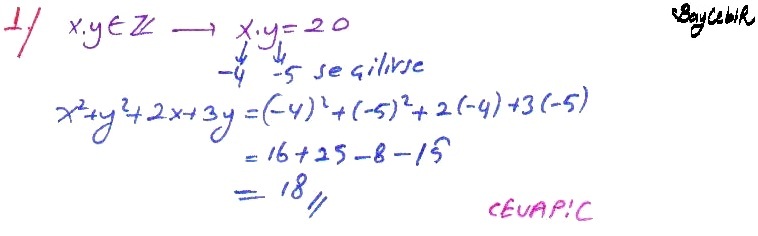 1/ x.y∈ℤ → x.y=20
BayCebiR
-4 -5 seçilirse
x²+y²+2x+3y=(-4)²+(-5)²+2(-4)+3(-5)
=16+25-8-15
=18//
CEVAP:C